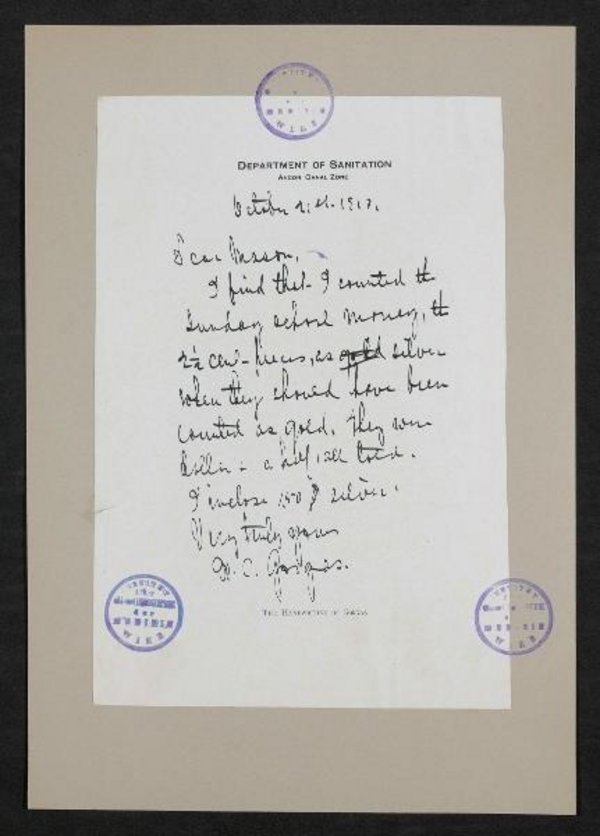 DEPARTMENT OF SANITATION
ANCON CANAL ZONE
October 1917.
Dear
I find that I counted the
Sunday school money, the
2½ cent pieces, as gold silver
when they should have been
counted as gold. They were
dollar & a half, all told.
I inclose 1.50 silver.
Very truly yours
W. C. Gorgas.
THE HANDWRITING OF GORGAS